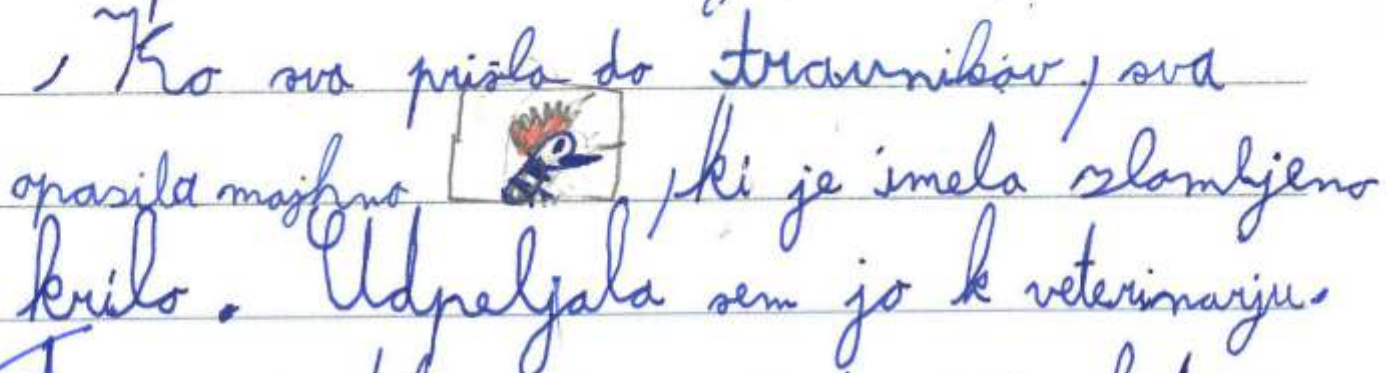 , Ko sva prišla do travnikov, sva
opazila majhno , ki je imela zlombjeno
krilo. Udpeljala sem jo k veterinarju.